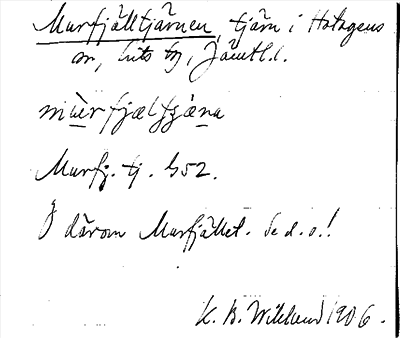 Murfjälltjärnen, tjärn i Hotagens
sn, Lits tg, Jämtl. l.
Murfj. tj. G52.
Ö därom Murfjället. Se d. o.!
K. B. Wiklund 1906.